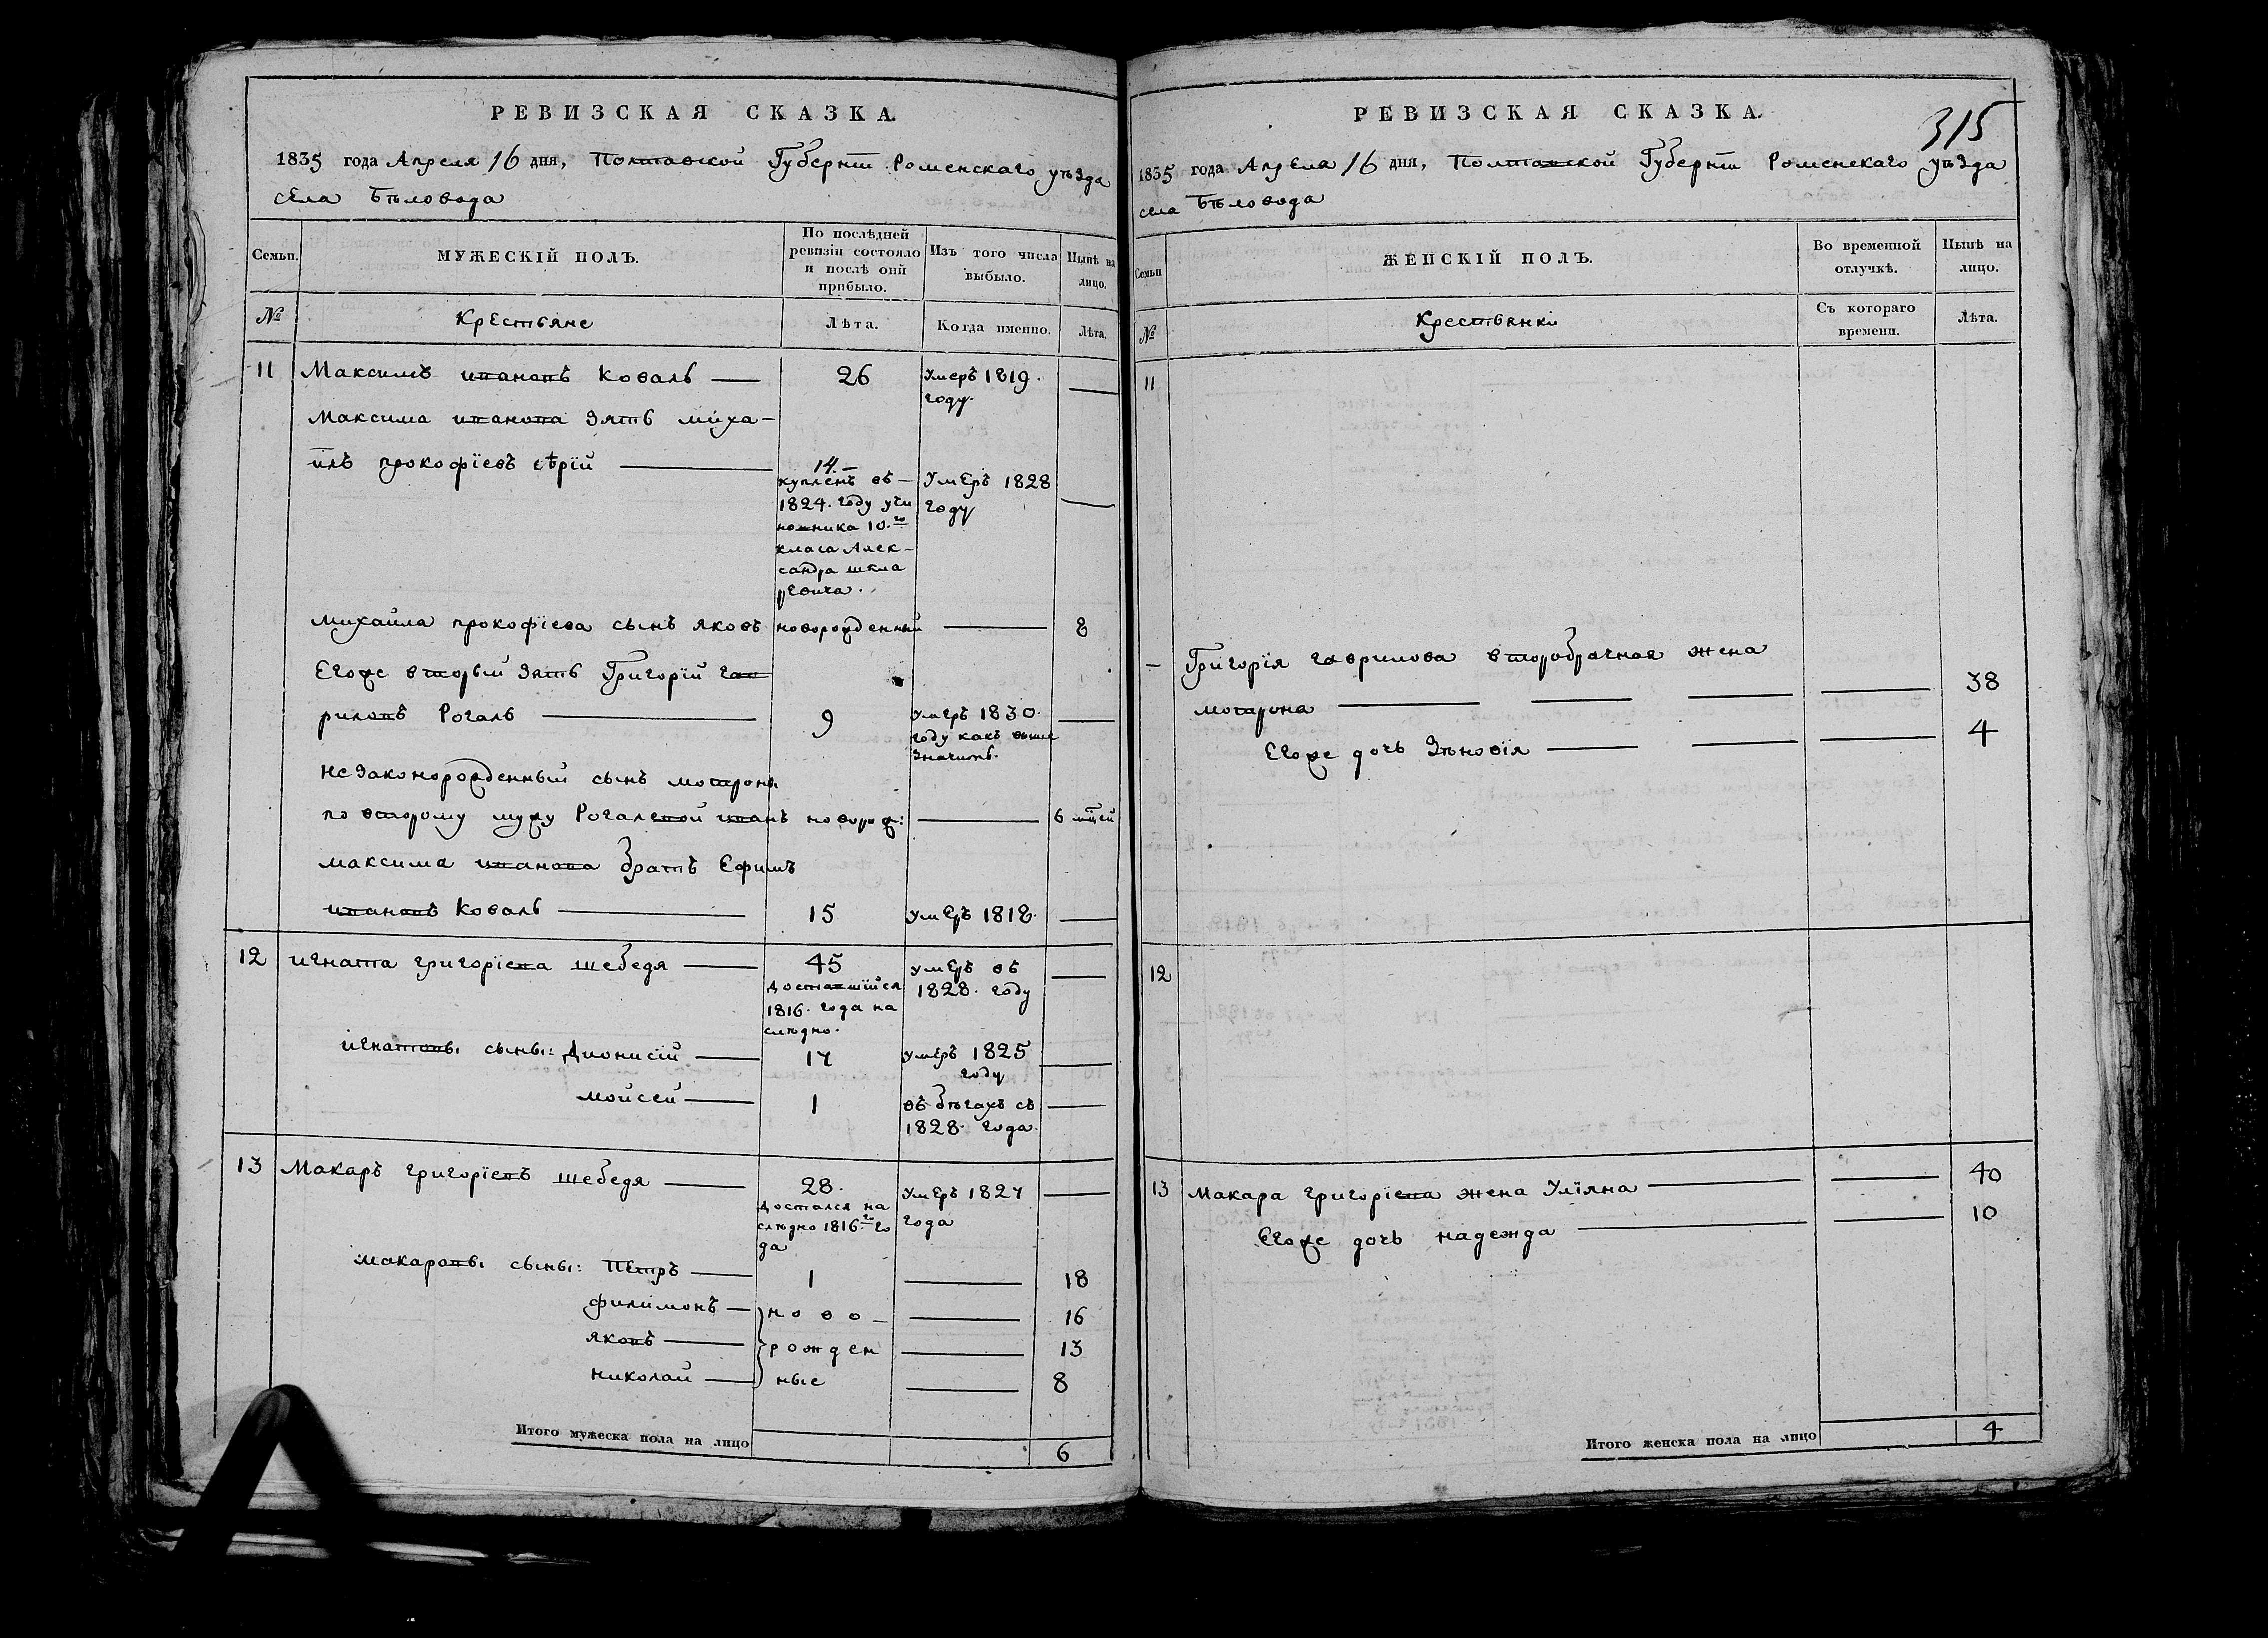 РЕВИЗСКАЯ СКАЗКА.
1835 года Апреля 16 дня, Полтавской Губернїи Роменскаго уѣзда
села Бѣловода
Семьи.
МУЖЕСКІЙ ПОЛЪ.
По послѣдней
ревизіи состояло
и послѣ оной
прибыло.
Изъ того числа
выбыло.
Нынѣ на
лицо.
№
Крестьяне
Лѣта.
Когда именно.
Лѣта.
11 Максимъ ивановъ Коваль 26 Умеръ 1819.
году.
Максима иванова зять миха-
илъ прокофїевъ сѣрїй 14.
купленъ въ
1824. году учи
новника 10.го
класа Алек-
сандра шкла
ревича.
Умеръ 1828
году
михайла прокофїева сынъ яковъ новорожденный 8
Егоже вторый зять Григорїй гав
риловъ Рогаль 9 умеръ 1830.
году какъ выше
значить.
незаконорожденный сынъ мотроны
по второму мужу Рогалевой иванъ новорож: 6 мцей
максима иванова братъ Ефимъ
ивановъ Коваль 15 умеръ 1818.
12 игната григорїева шебедя 45 умеръ въ
1828. году
доставшїйся
1816. года на
слѣдно.
игнатовы сыны: Дионисїй 17 умеръ 1825
году
мойсей 1 въ бѣгахъ съ
1828. года.
13 Макаръ григорїевъ шебедя 28. умеръ 1827
года
достался на
слѣдно 1816.го го
да
макаровы сыны: Петръ 1 18
филимонъ ново- 16
яковъ рожден 13
николай ные 8
Итого мужеска пола на лицо 6
315
РЕВИЗСКАЯ СКАЗКА.
1835 года Апреля 16 дня, Полтавской Губернїи Роменскаго уѣзда
села Бѣловода
Семьи
ЖЕНСКІЙ ПОЛЪ.
Во временной
отлучкѣ.
Нынѣ на
лицо.
№
Крестьянки
Съ котораго
времени.
Лѣта.
11
Григорїя гаврилова второбрачная жена
мотрона 38
Егоже дочь Зѣновїя 4
12
13 Макара григорїева жена Улїяна 40
Егоже дочь надежда 10
Итого женска пола на лицо 4